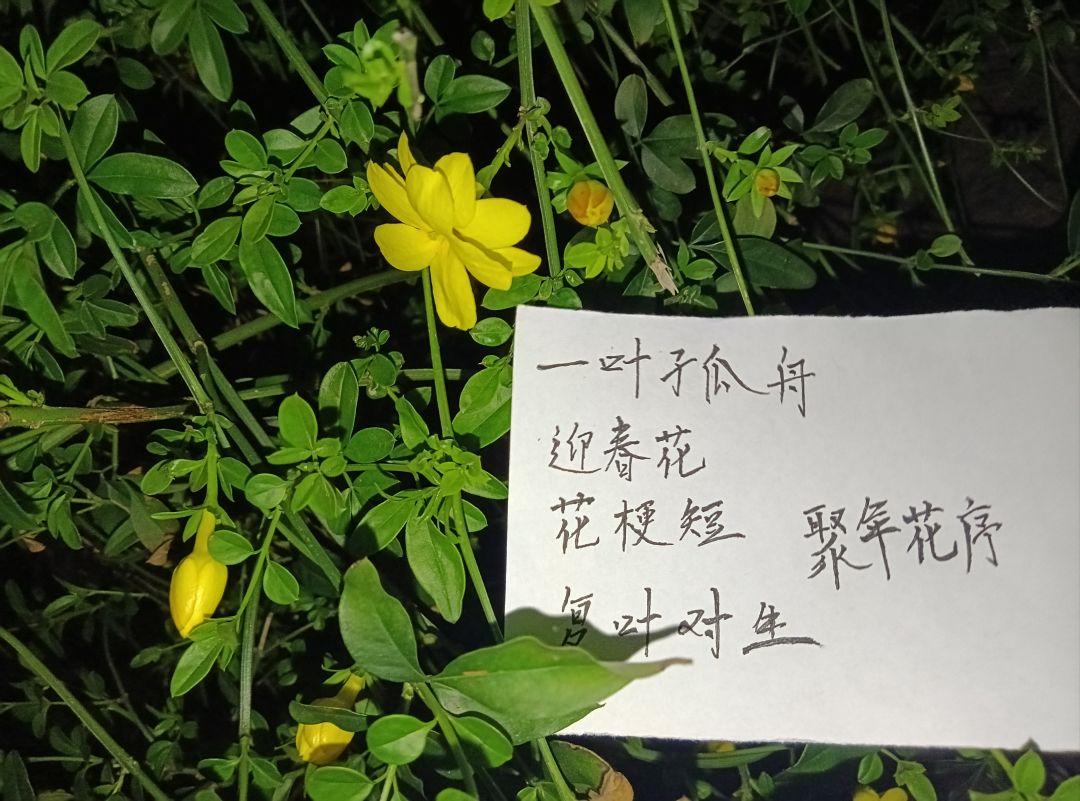 一叶孑瓜舟
迎春花
花梗短 聚伞花序
复叶对生